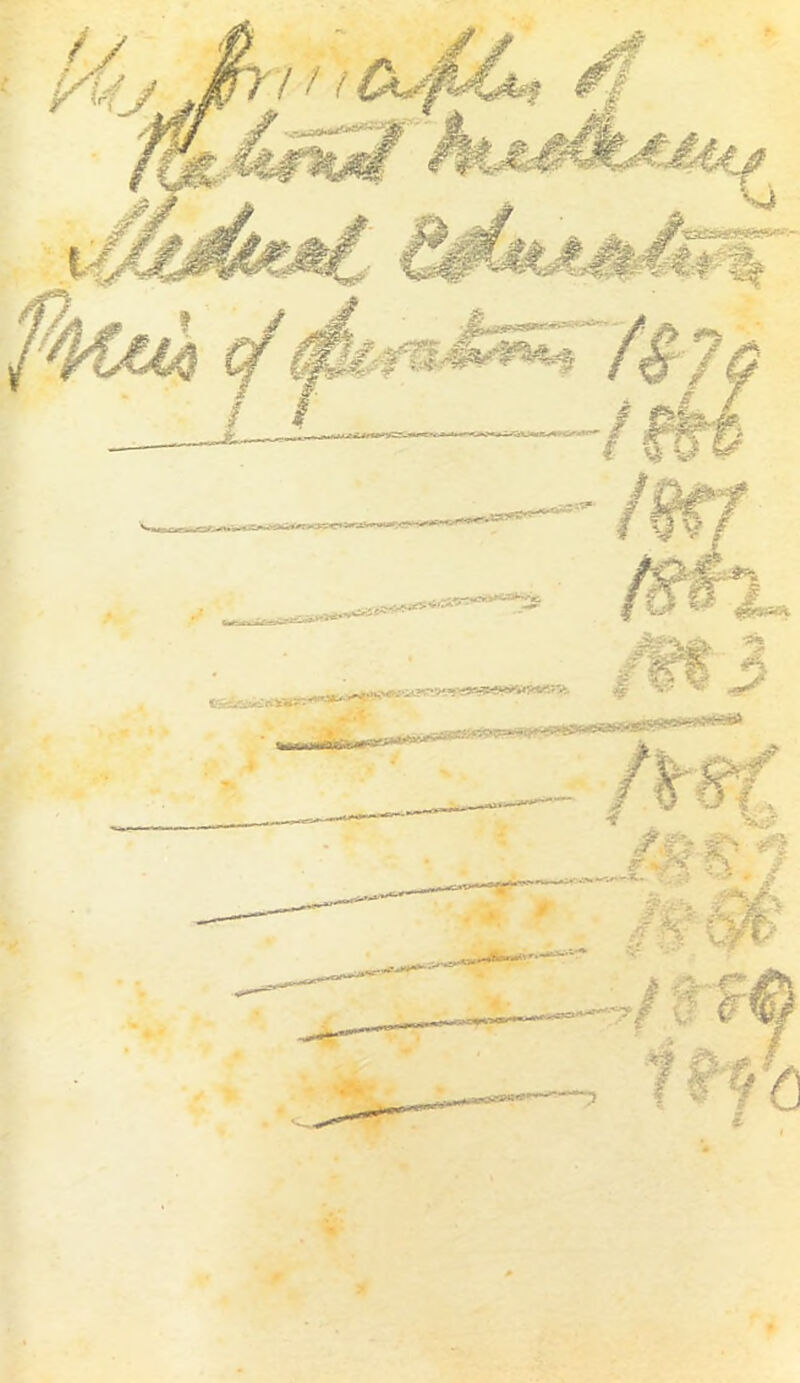 The principles of
Rational Medicine
Medical Education
Précis of Operations 1879
1880
1881
1882
1883
1886
1887
1888
1889
1890